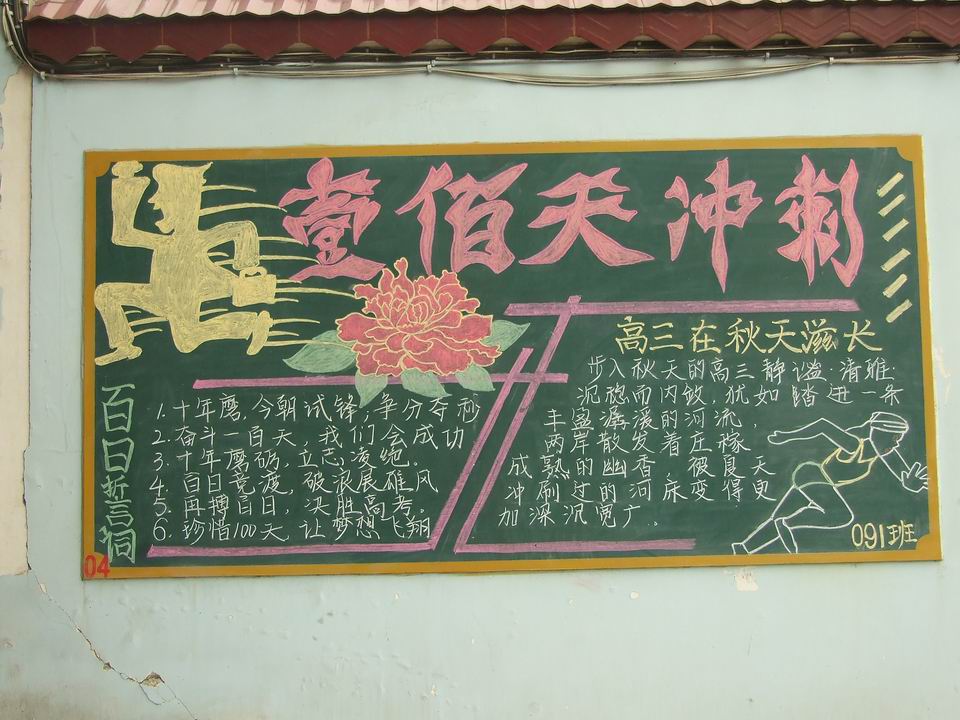 壹佰天冲刺
百日誓词
1. 十年磨,今朝试锋,争分夺秒
2. 奋斗一百天,我们会成功
3. 十年磨砺,立志凌绝。
4. 百日竞渡,破浪展雄风
5. 再搏百日,决胜高考。
6. 珍惜100天 让梦想飞翔
高三在秋天滋长
步入秋天的高三静谧·清雅·
沉稳而内敛,犹如踏进一条
丰盈潺湲的河流,
两岸散发着庄稼
成熟的幽香,被夏天
冲刷过的河床变得更
加深沉宽广。
091班
04